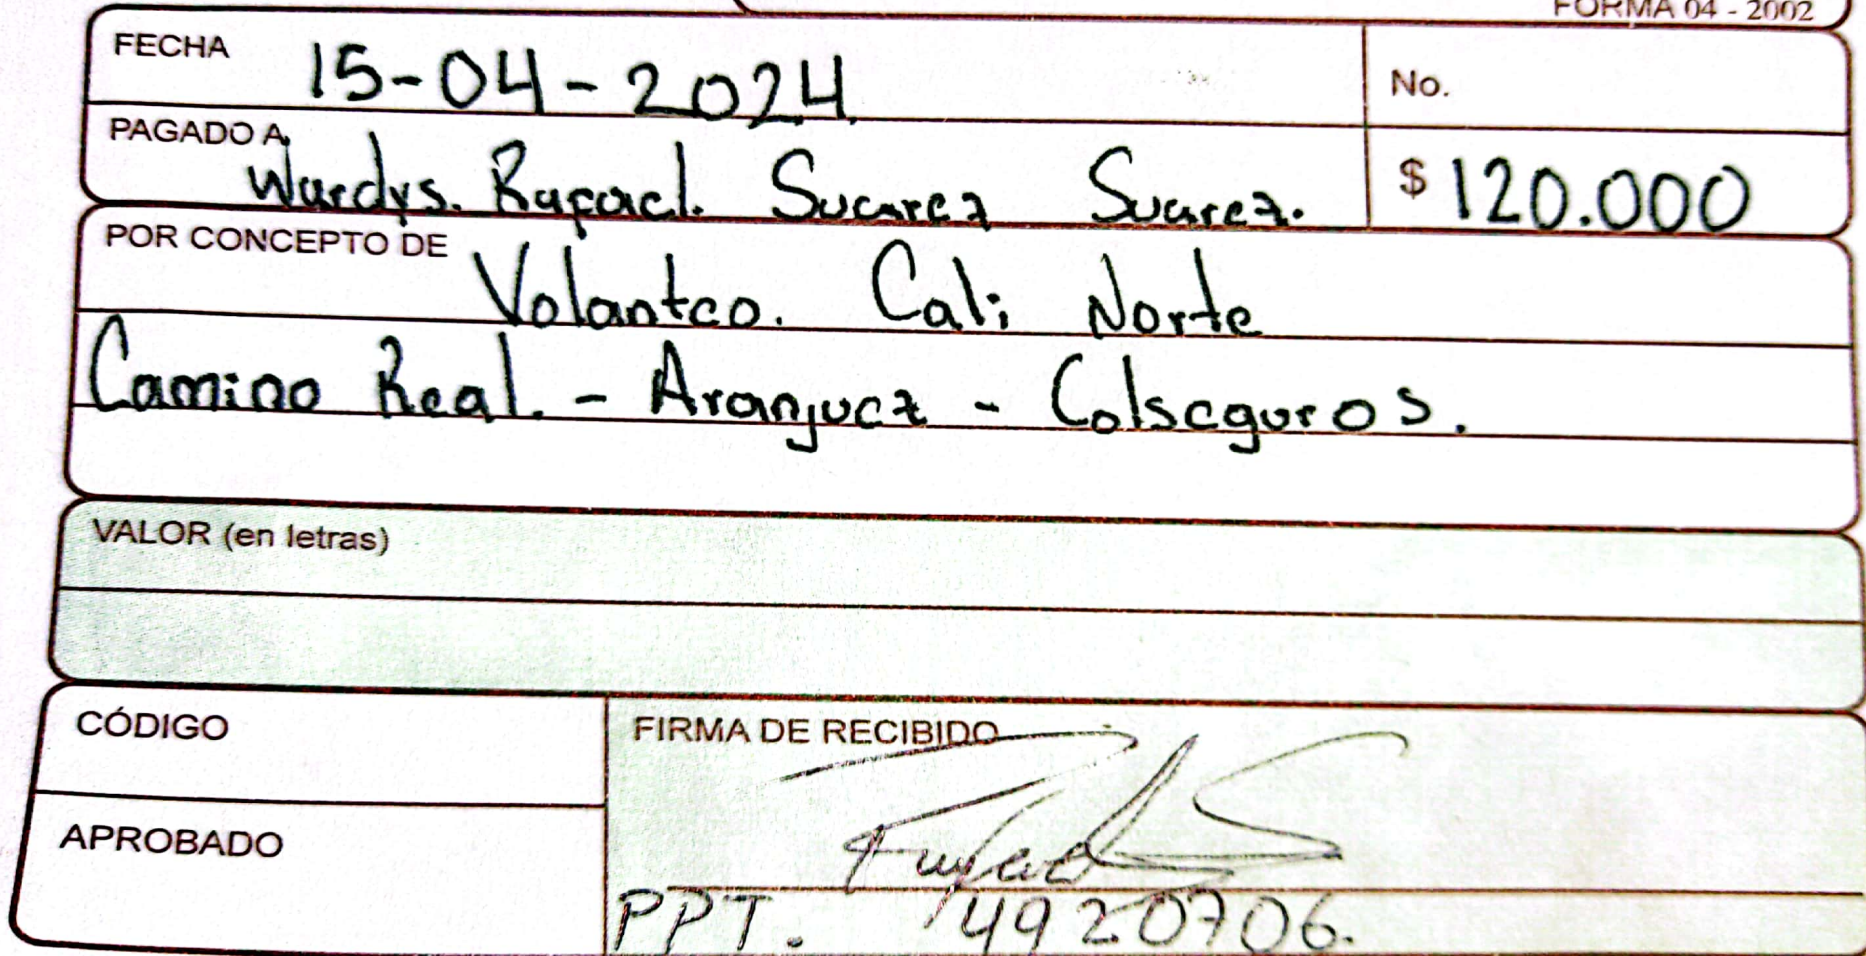 FORMA 04 - 2002
FECHA 15-04-2024.
No.
PAGADO A Wardys. Rafael. Suarez Suarez.
$ 120.000
POR CONCEPTO DE Volanteo. Cali Norte
Camino Real. - Aranjuez - Colseguros.
VALOR (en letras)
CÓDIGO
FIRMA DE RECIBIDO
Rafael S
APROBADO
PPT. 4920706.